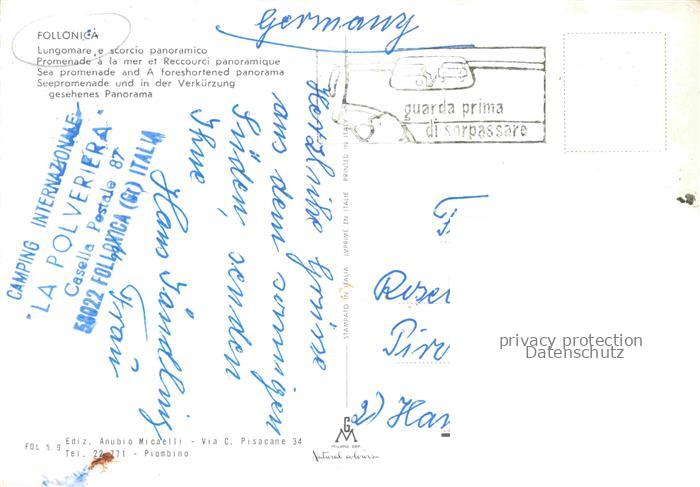 Germany
FOLLONICA
Lungomare e scorcio panoramico
Promenade à la mer et Reccourci panoramique
Sea promenade and A foreshortened panorama
Seepromenade und in der Verkürzung
gesehenes Panorama
guarda prima
di sorpassare
CAMPING INTERNAZIONALE
"LA POLVERIERA"
Casella Postale 87
58022 FOLLONICA (Gr) ITALIA
Herzliche Grüsse
aus dem sonnigen
Süden, senden
Ihne
Hans
Frau
STAMPATO IN ITALIA IMPRIMÉ EN ITALIE PRINTED IN
privacy protection
Datenschutz
2) Han
Ediz. Anubio Micaelli - Via C. Pisacane 34
Tel. 22771 - Piombino
FOL 5/9
GM
Natural colours